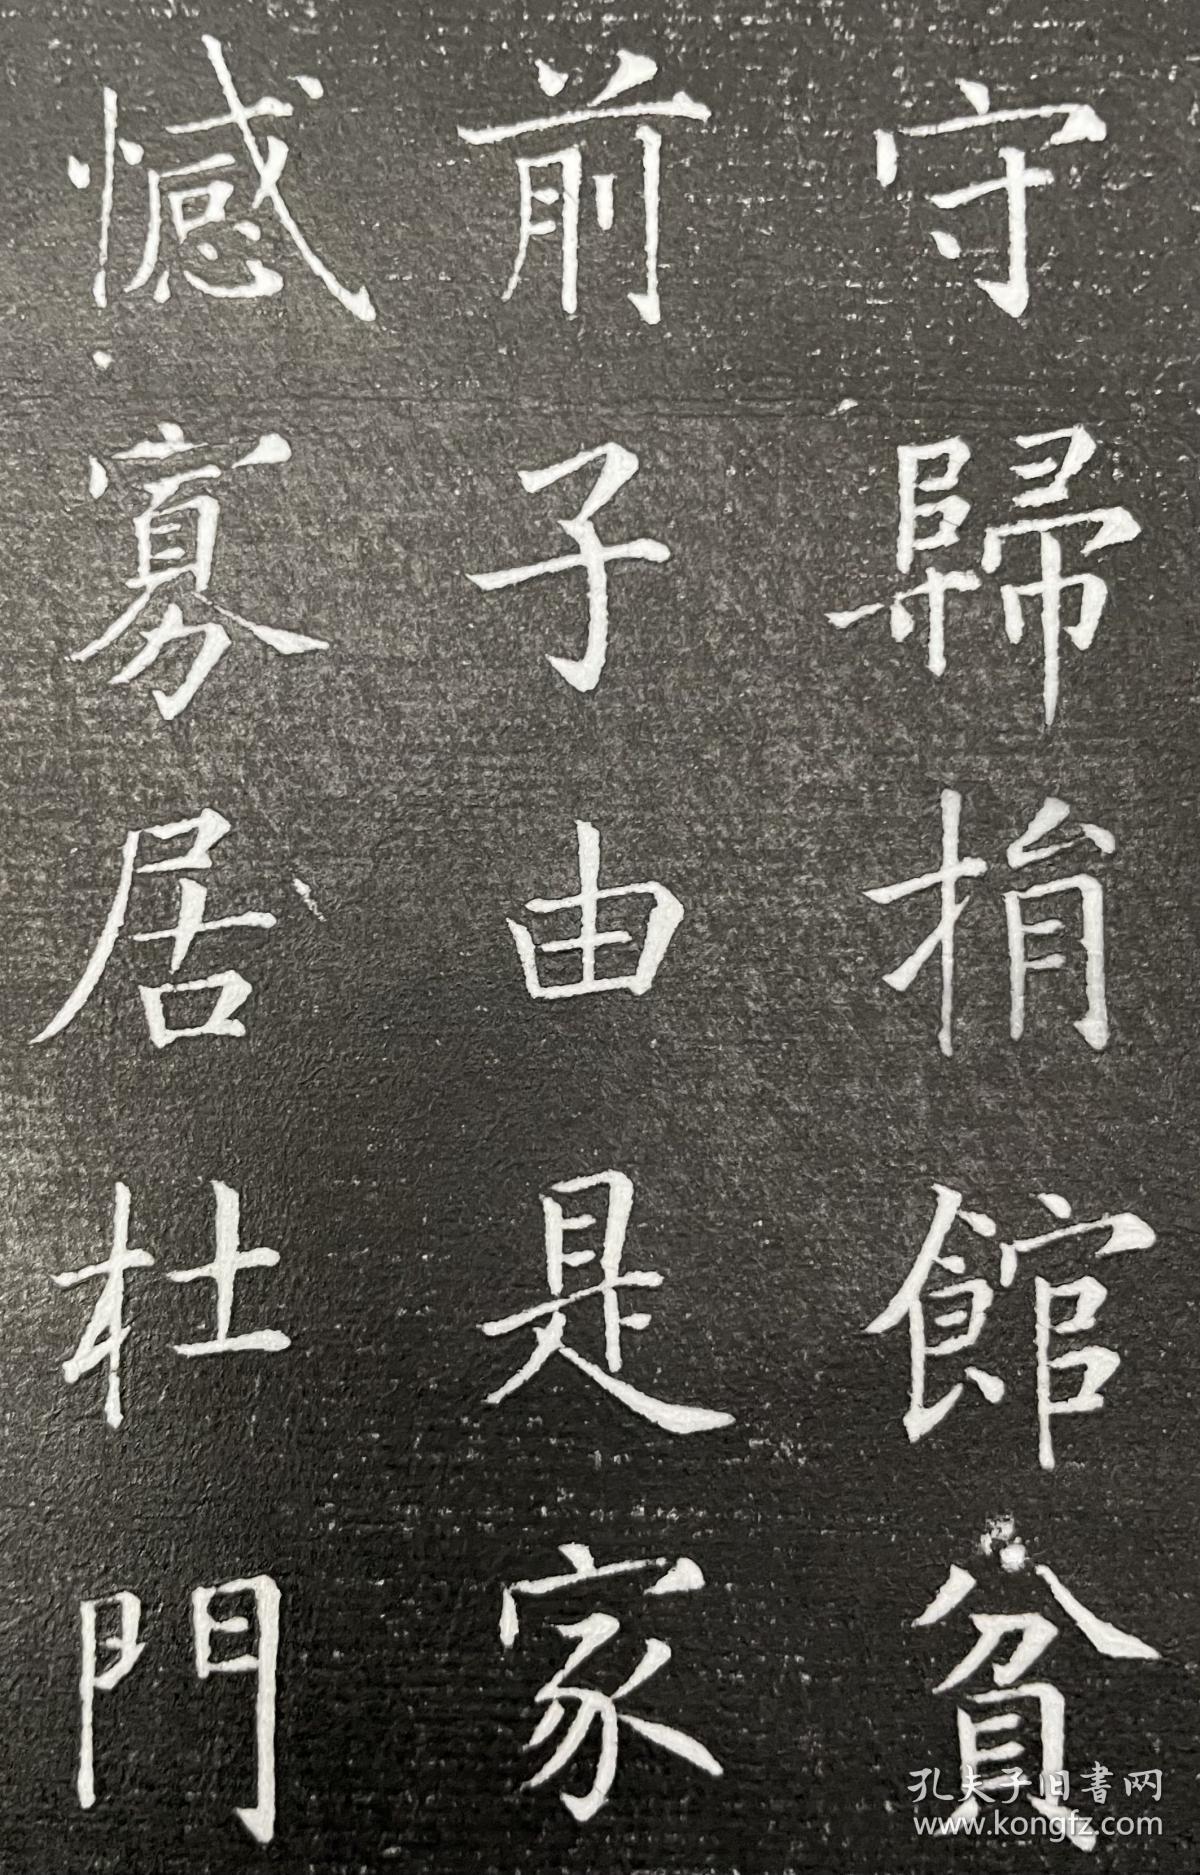 守歸捐館貧
前子由是家
憾寡居杜門
孔夫子旧書网
www.kongfz.com